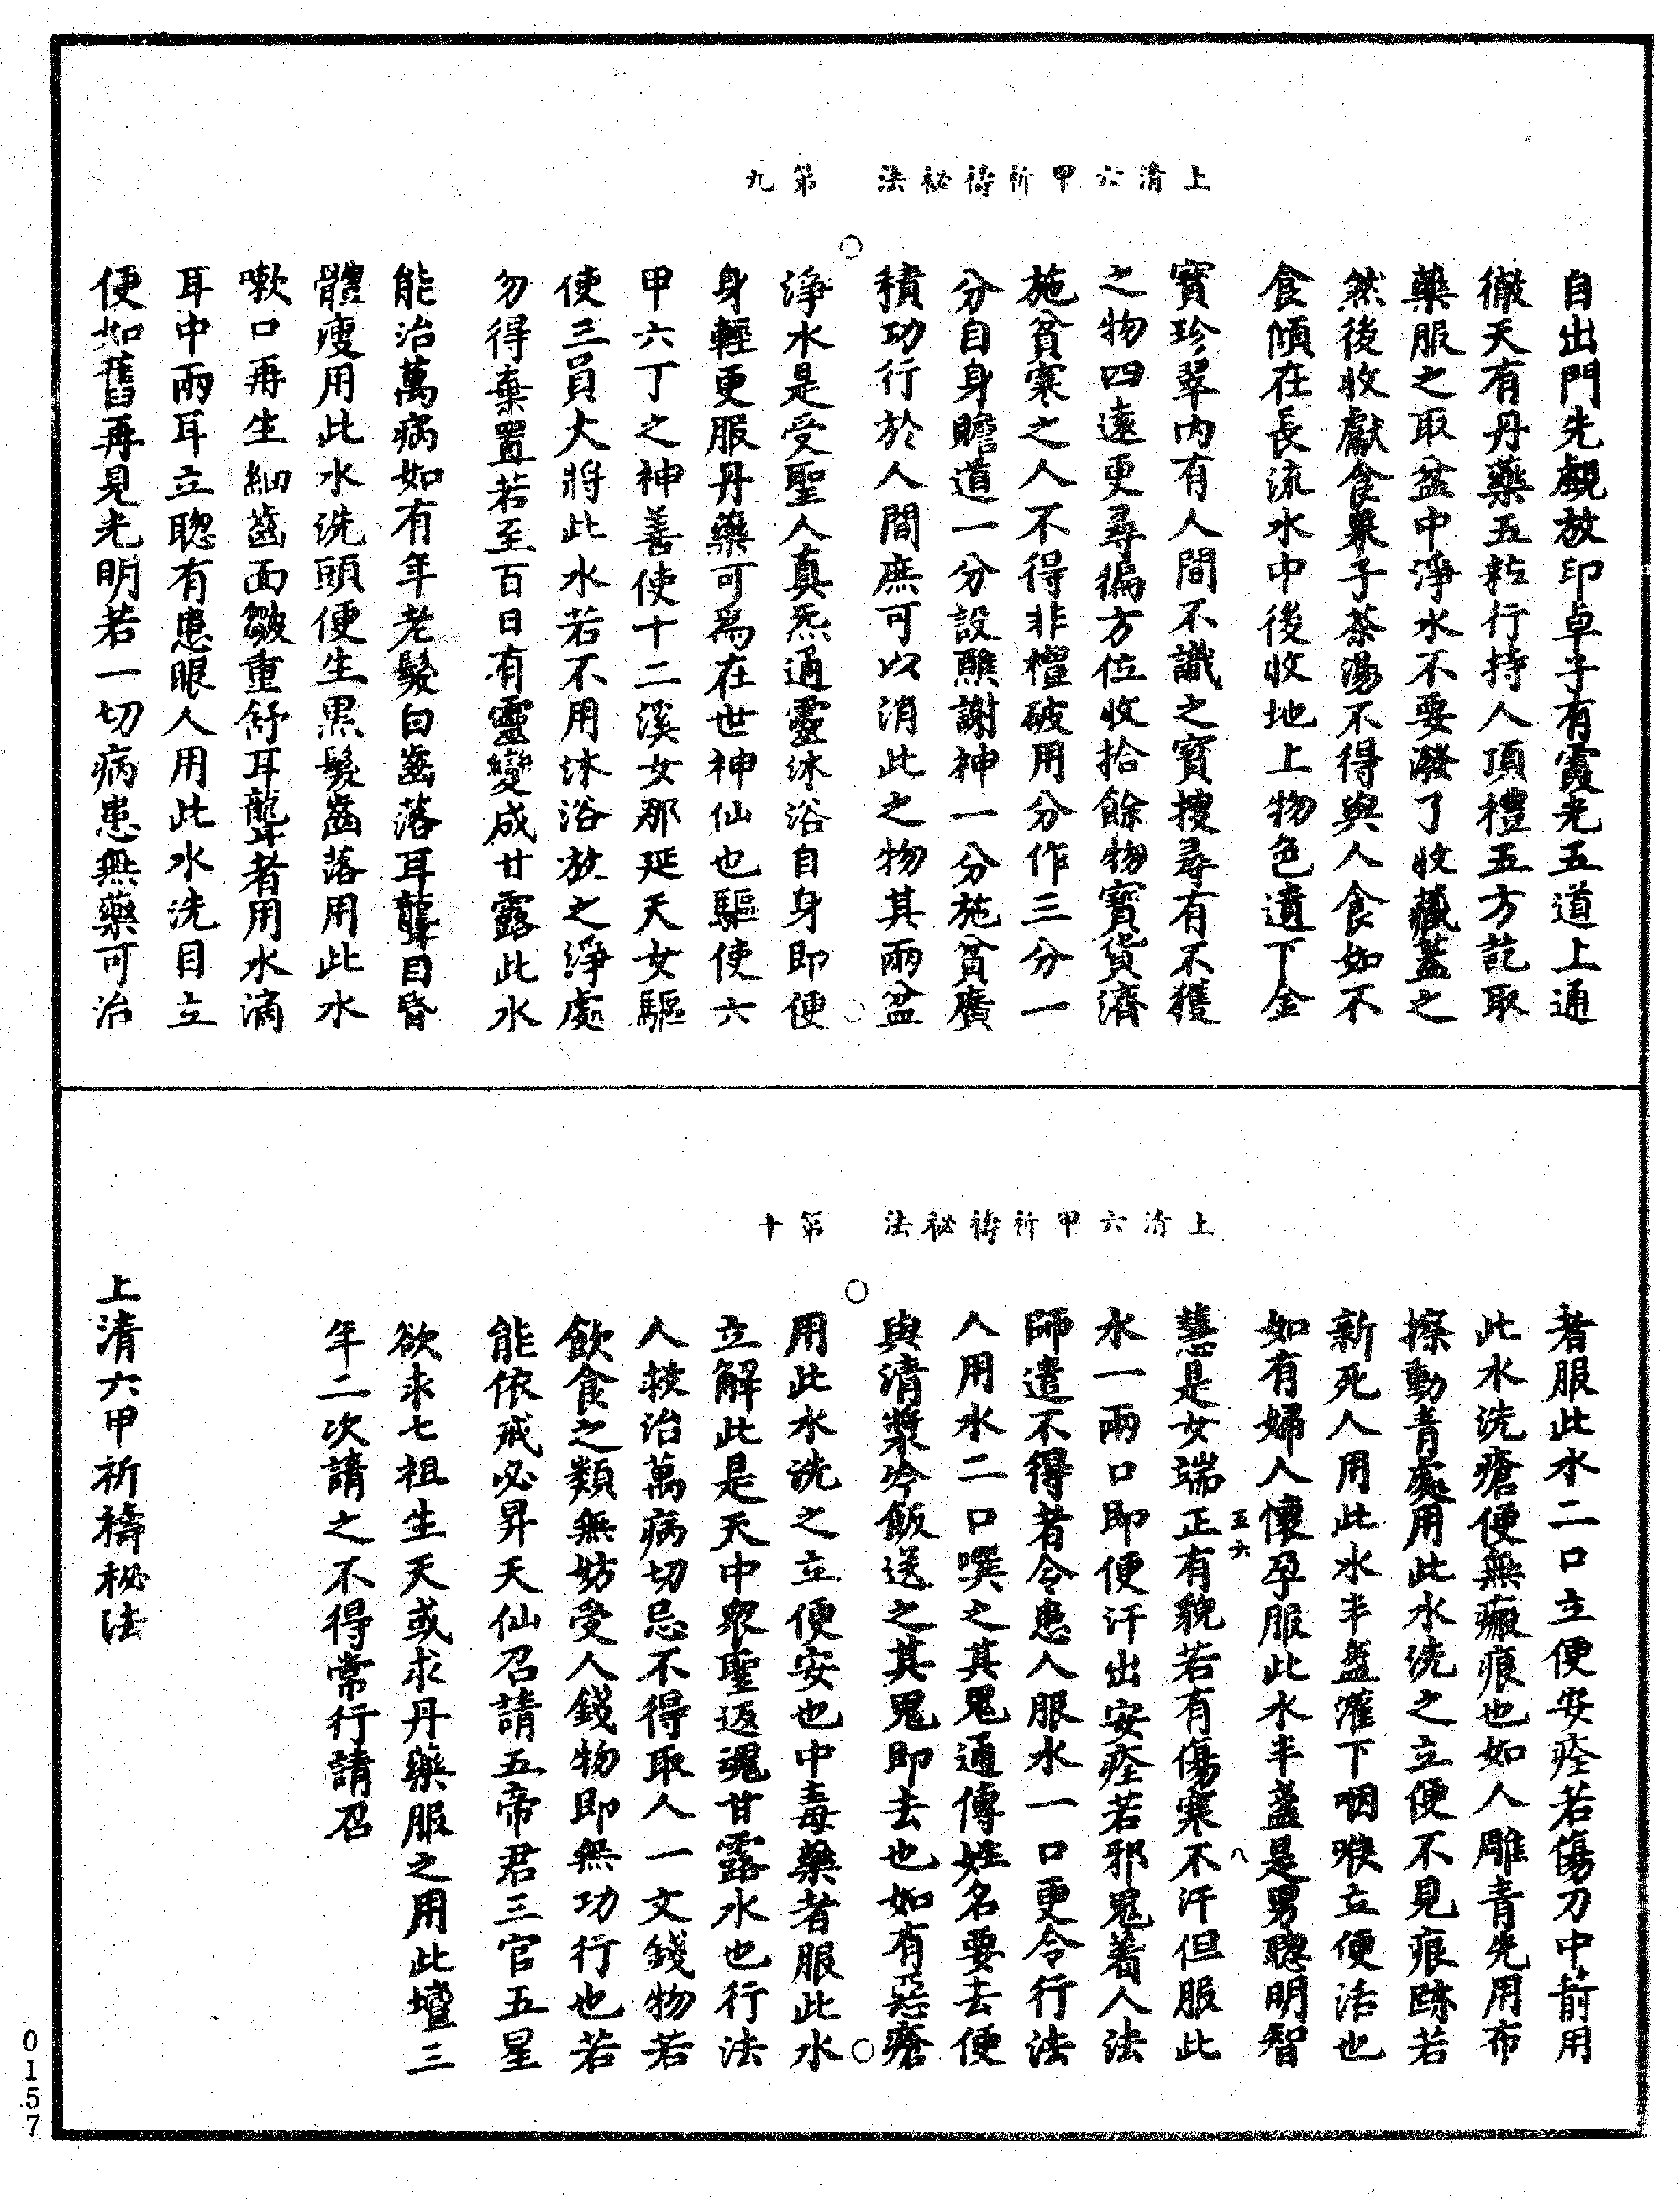 上清六甲祈禱祕法　第九
自出門先覷放印卓子有霞光五道上通
徹天有丹藥五粒行持人頂禮五方訖取
藥服之取盆中淨水不要潑了收藏蓋之
然後收獻食果子茶湯不得與人食如不
食傾在長流水中後收地上物色遺下金
寶珍翠內有人間不識之寶搜尋有不獲
之物四遠更尋徧方位收拾餘物寶貨濟
施貧寒之人不得非禮破用分作三分一
分自身贍道一分設醮謝神一分施貧廣
積功行於人間庶可以消此之物其兩盆
淨水是受聖人真炁通靈沐浴自身即便
身輕更服丹藥可爲在世神仙也驅使六
甲六丁之神善使十二溪女那延天女驅
使三員大將此水若不用沐浴放之淨處
勿得棄置若至百日有靈變成甘露此水
能治萬病如有年老髮白齒落耳聾目昏
體瘦用此水洗頭便生黑髮齒落用此水
嗽口再生細齒面皺重舒耳聾者用水滴
耳中兩耳立聰有患眼人用此水洗目立
便如舊再見光明若一切病患無藥可治
上清六甲祈禱祕法　第十
者服此水二口立便安痊若傷刀中箭用
此水洗瘡便無瘢痕也如人雕青先用布
擦動青處用此水洗之立便不見痕跡若
新死人用此水半盞灌下咽喉立便活也
如有婦人懷孕服此水半盞是男聰明智
五六
八
慧是女端正有貌若有傷寒不汗但服此
水一兩口即便汗出安痊若邪鬼着人法
師遣不得者令患人服水一口更令行法
人用水二口噀之其鬼通傳姓名要去便
與清漿冷飯送之其鬼即去也如有惡瘡
用此水洗之立便安也中毒藥者服此水
立解此是天中衆聖返魂甘露水也行法
人救治萬病切忌不得取人一文錢物若
飲食之類無妨受人錢物即無功行也若
能依戒必昇天仙召請五帝君三官五星
欲求七祖生天或求丹藥服之用此壇三
年二次請之不得常行請召
上清六甲祈禱秘法
0157